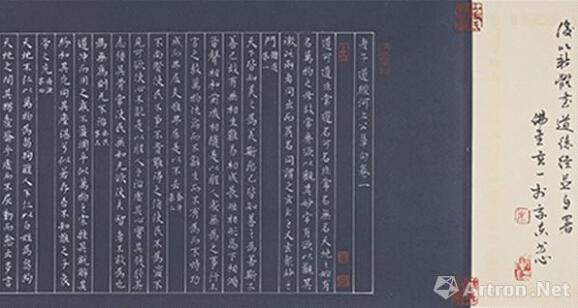 後以新體書道德經並自署
老子道經河上公章句卷一
道可道非常道名可名非常名無名天地之始有
名萬物之母故常無欲以觀其妙常有欲以觀其
徼此兩者同出而異名同謂之玄玄之又玄衆妙之
門 體道第一
天下皆知美之爲美斯惡已皆知善之爲善斯不
善已故有無相生難易相成長短相形高下相傾
音聲相和前後相隨是以聖人處無爲之事行不
言之教萬物作焉而不辭生而不有爲而不恃功
成而弗居夫唯弗居是以不去 養身第二
不尚賢使民不爭不貴難得之貨使民不爲盜不
見可欲使心不亂是以聖人治虛其心實其腹弱其
志強其骨常使民無知無欲使夫智者不敢爲也
爲無爲則無不治 安民第三
道沖而用之或不盈淵乎似萬物之宗挫其銳解其
紛和其光同其塵湛兮似若存吾不知誰之子象
帝之先 無源第四
天地不仁以萬物爲芻狗聖人不仁以百姓爲芻狗
天地之間其猶橐籥乎虛而不屈動而愈出多言
雅昌艺术网
Artron.Net